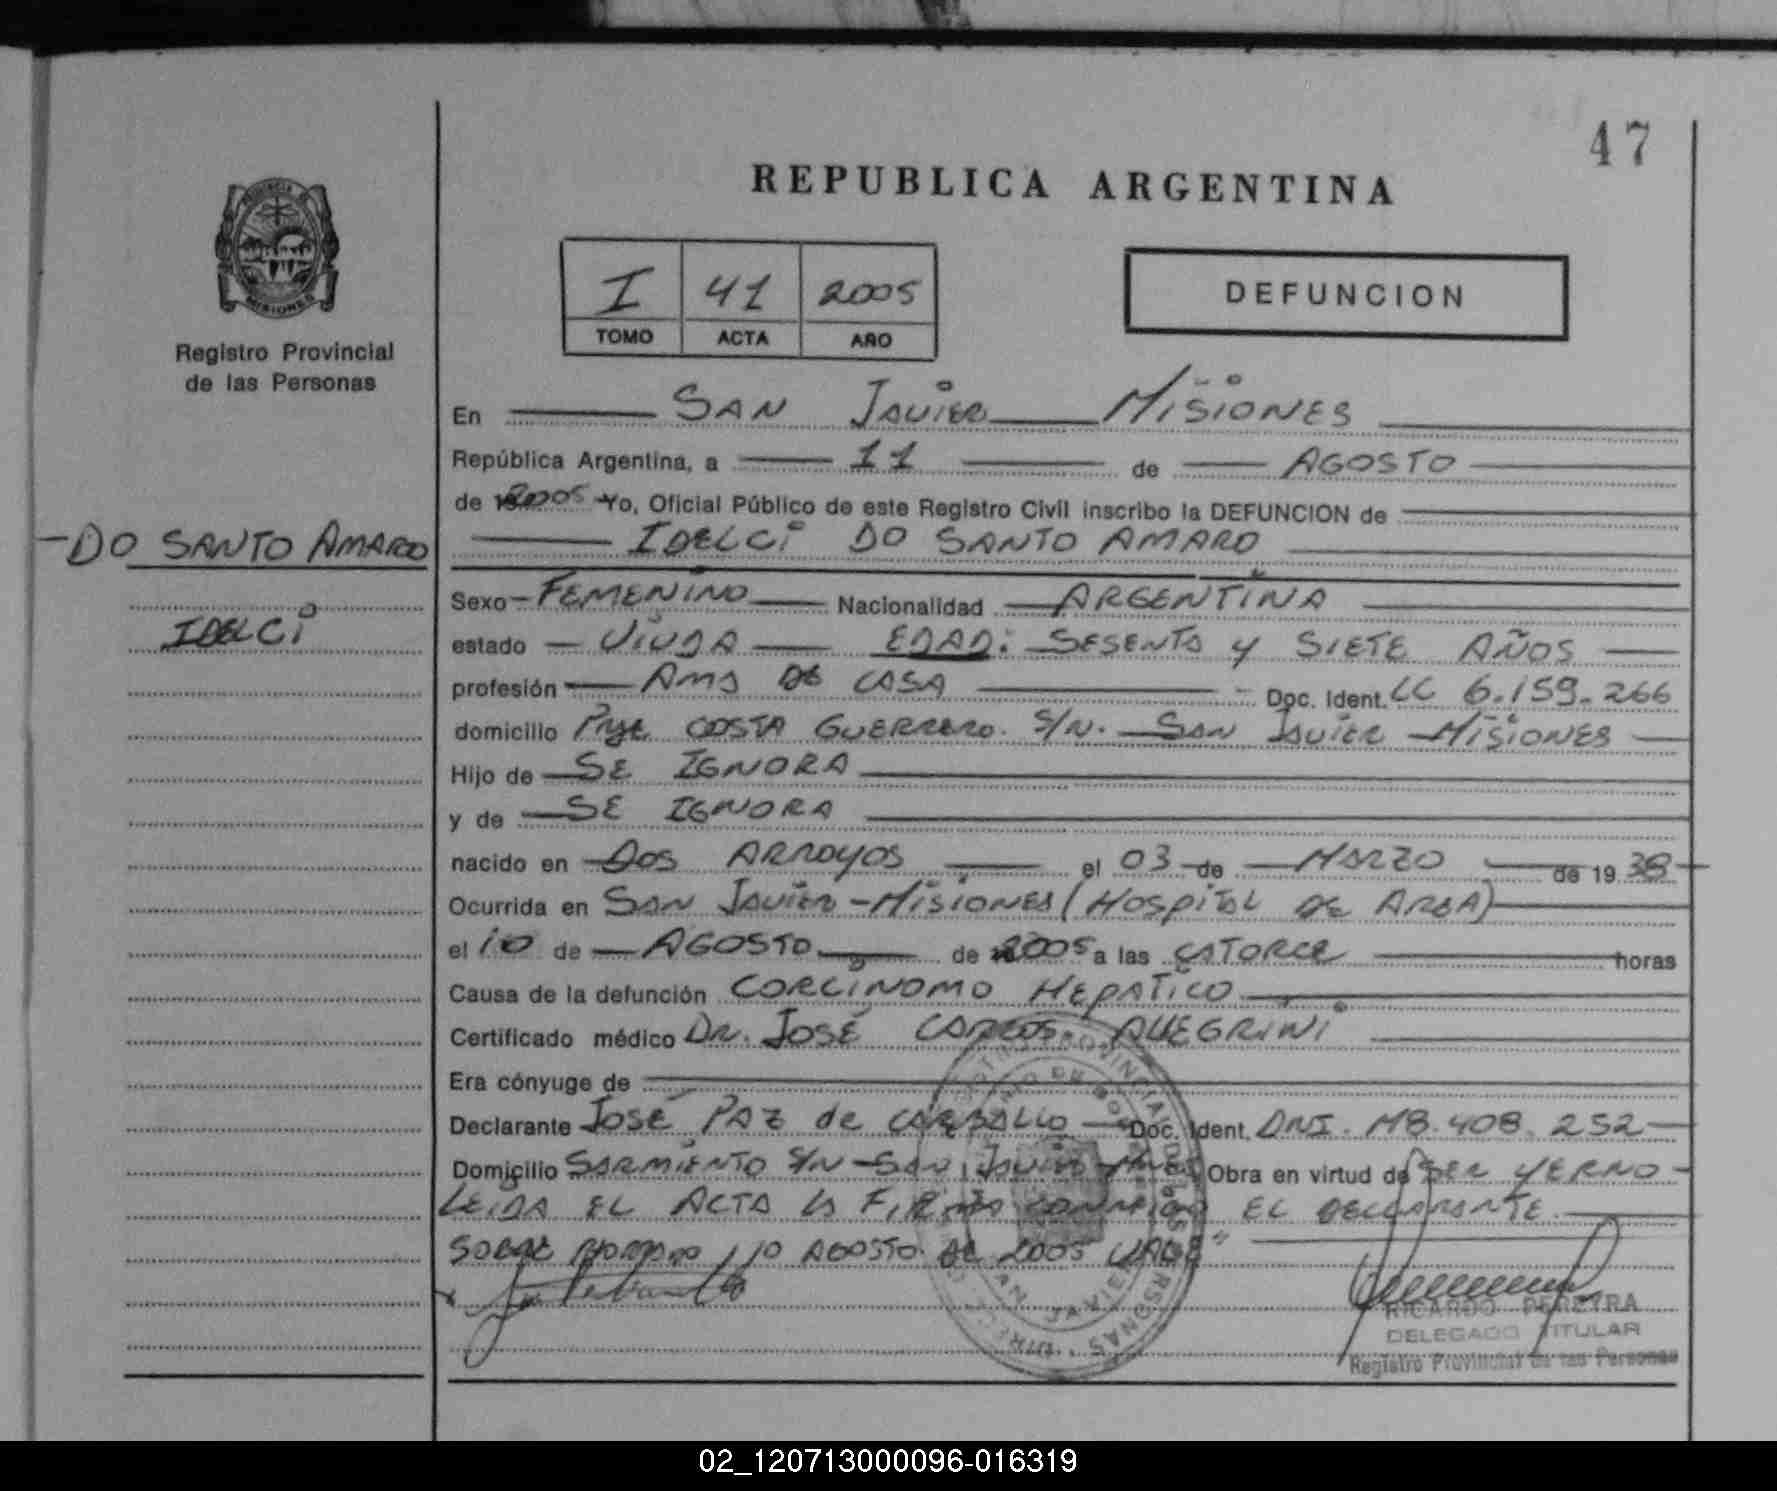 47
REPUBLICA ARGENTINA
I 41 2005
TOMO ACTA AÑO
DEFUNCION
PROVINCIA DE
MISIONES
Registro Provincial
de las Personas
DO SANTO AMARO
IDELCI
En SAN JAVIER MISIONES
República Argentina, a 11 de AGOSTO
de 2005 Yo, Oficial Público de este Registro Civil inscribo la DEFUNCION de
IDELCI DO SANTO AMARO
Sexo FEMENINO Nacionalidad ARGENTINA
estado VIUDA EDAD: SESENTA y SIETE AÑOS
profesión AMA DE CASA Doc. Ident. LC 6.159.266
domicilio Pje COSTA GUERRERO S/N. SAN JAVIER MISIONES
Hijo de SE IGNORA
y de SE IGNORA
nacido en DOS ARROYOS el 03 de MARZO de 1938
Ocurrida en SAN JAVIER - MISIONES (HOSPITAL DE AREA)
el 10 de AGOSTO de 2005 a las CATORCE horas
Causa de la defunción CARCINOMA HEPATICO
Certificado médico DR. JOSÉ CARLOS ALLEGRINI
Era cónyuge de
Declarante JOSÉ PAZ de CARBALLO Doc. Ident. DNI. M8.408.252
Domicilio SARMIENTO S/N - SAN JAVIER Obra en virtud de SER YERNO
LEIDA EL ACTA LA FIRMA CONMIGO EL DECLARANTE
SOBRE BORRADO 10 AGOSTO DE 2005 VALE"
RICARDO PEREYRA
DELEGADO TITULAR
Registro Provincial de las Personas
02_120713000096-016319